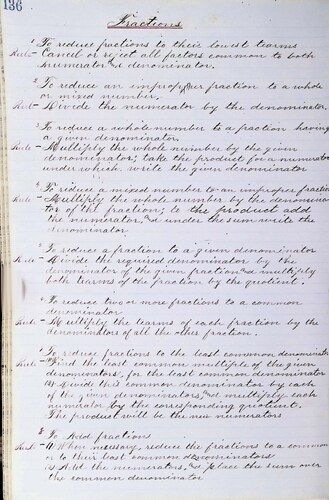 136
Fractions
1 To reduce fractions to their lowest terms
Rule - Cancel or reject all factors common to both
numerator and denominator.
2 To reduce an improper fraction to a whole
or mixed number.
Rule - Divide the numerator by the denominator
3 To reduce a whole number to a fraction having
a given denominator
Rule - Multiply the whole number by the given
denominator; take the product for a numerator
under which write the given denominator
4 To reduce a mixed number to an improper fraction
Rule - Multiply the whole number by the denomina-
tor of the fraction; to the product add
the numerator, and under the sum write the
denominator
5 To reduce a fraction to a given denominator
Rule - Divide the required denominator by the
denominator of the given fraction and multiply
both terms of the fraction by the quotient.
6 To reduce two or more fractions to a common
denominator
Rule - Multiply the terms of each fraction by the
denominators of all the other fraction.
7 To reduce fractions to the least common denominator
Rule - (1) Find the least common multiple of the given
denominators, for the least common denominator
(2) Divide this common denominator by each
of the given denominators, and multiply each
numerator by the corresponding quotient.
The product will be the new numerators
8 To Add fractions
Rule - (1) When necessary, reduce the fractions to a common
or to their least common denominators
(2) Add the numerators, and place the sum over
the common denominator